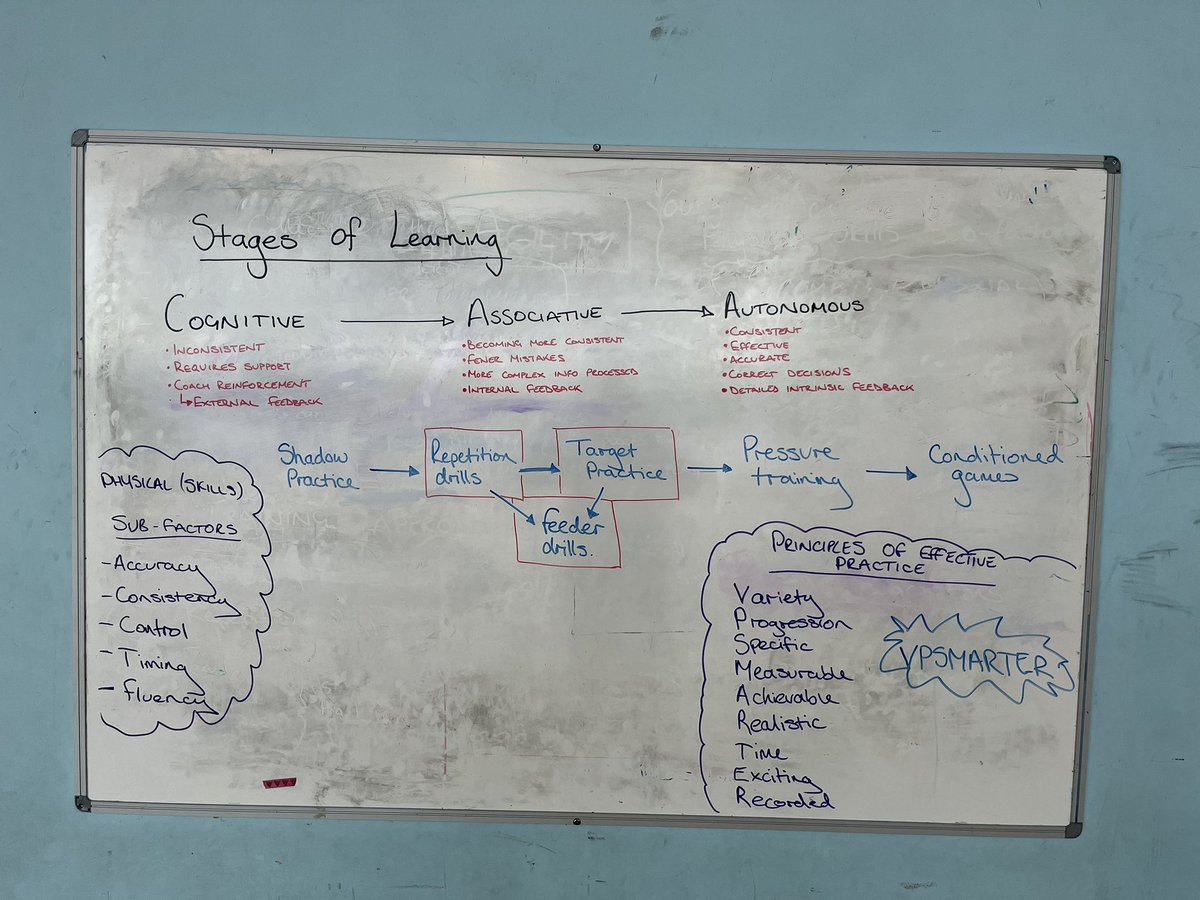 Stages of Learning
COGNITIVE
• INCONSISTENT
• REQUIRES SUPPORT
• COACH REINFORCEMENT
↳ EXTERNAL FEEDBACK
ASSOCIATIVE
• BECOMING MORE CONSISTENT
• FEWER MISTAKES
• MORE COMPLEX INFO PROCESSED
• INTERNAL FEEDBACK
AUTONOMOUS
• CONSISTENT
• EFFECTIVE
• ACCURATE
• CORRECT DECISIONS
• DETAILED INTRINSIC FEEDBACK
Shadow
Practice
Repetition
drills
Target
Practice
feeder
drills.
Pressure
training
Conditioned
games
PHYSICAL (SKILLS)
SUB-FACTORS
- Accuracy
- Consistency
- Control
- Timing
- fluency
PRINCIPLES OF EFFECTIVE
PRACTICE
Variety
Progression
Specific
Measurable
Achievable
Realistic
Time
Exciting
Recorded
VPSMARTER